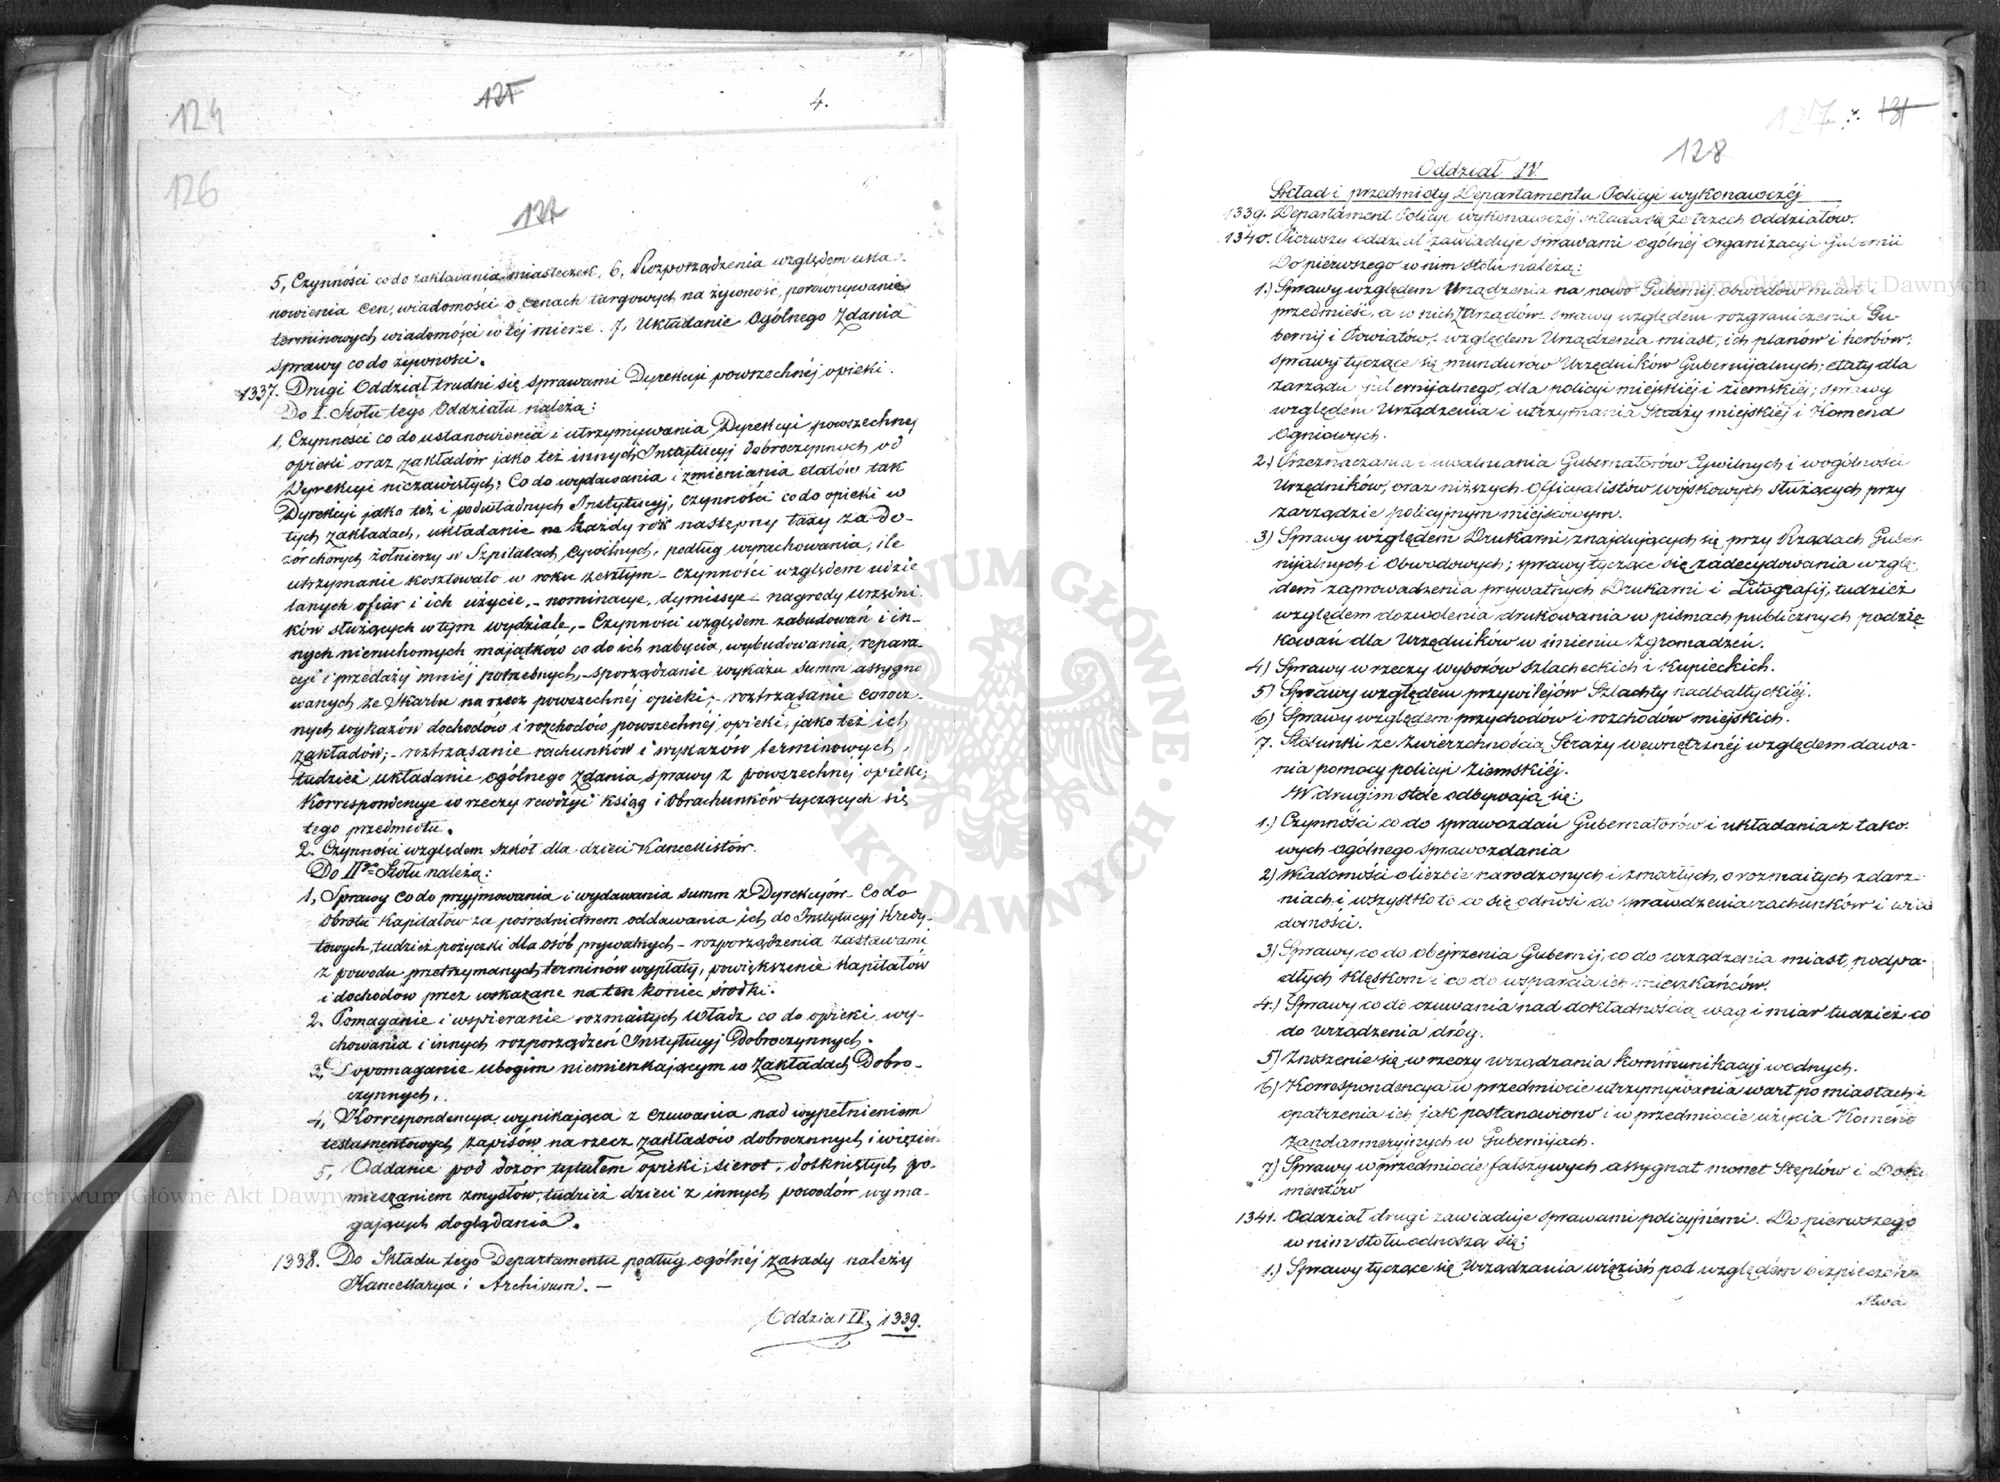 124
127
4.
126
127
5, Czynności co do zakładania miasteczek, 6, Rozporządzenia względem usta-
nowienia cen, wiadomości o cenach targowych na żywność, porównywanie
terminowych wiadomości w tej mierze. 7, Układanie Ogólnego Zdania
sprawy co do żywności.
1337. Drugi Oddział trudni się sprawami Dyrekcyi powszechnej opieki.
Do I. Stołu tego Oddziału należą:
1, Czynności co do ustanowienia i utrzymywania Dyrekcyi powszechnej
opieki oraz zakładów jako też innych Instytucyj dobroczynnych od
Dyrekcyi niezawisłych; Co do wydawania i zmieniania etatów tak
Dyrekcyi jako też i podwładnych Instytucyj, czynności co do opieki w
tych zakładach, układanie na każdy rok następny taxy za do-
zór chorych żołnierzy w Szpitalach Cywilnych, podług wyrachowania, ile
utrzymanie kosztowało w roku zeszłym - czynności względem udzie
lanych ofiar i ich użycie, - nominacye, dymissye - nagrody urzędni
ków służących w tym wydziale, - Czynności względem zabudowań i in-
nych nieruchomych majątków co do ich nabycia, wybudowania, repara
cyi i przedaży mniej potrzebnych, - sporządzanie wykazu summ assygno
wanych ze Skarbu na rzecz powszechnej opieki; - roztrząsanie corocz-
nych wykazów dochodów i rozchodów powszechnej opieki, jako też ich
zakładów; - roztrząsanie rachunków i wykazów terminowych,
tudzież układanie ogólnego zdania sprawy z powszechnej opieki;
Korrespondencye w rzeczy rewizyi ksiąg i obrachunków tyczących się
tego przedmiotu.
2. Czynności względem szkół dla dzieci Kancellistów.
Do IIgo Stołu należą:
1, Sprawy co do przyjmowania i wydawania summ z Dyrekcyów - Co do
obrotu Kapitałów za pośrednictwem oddawania ich do Instytucyj Kredy-
towych, tudzież pożyczki dla osób prywatnych - rozporządzenia zastawami
z powodu przetrzymanych terminów wypłaty, powiększenie Kapitałów
i dochodów przez wskazane na ten koniec środki.
2. Pomaganie i wspieranie rozmaitych władz co do opieki wy-
chowania i innych rozporządzeń Instytucyj Dobroczynnych.
3, Dopomaganie ubogim niemieszkającym w Zakładach Dobro-
czynnych,
4, Korrespondencya wynikająca z czuwania nad wypełnieniem
testamentowych zapisów na rzecz zakładów dobroczynnych i więzień
5, Oddanie pod dozór tytułem opieki; sierot, dotkniętych po-
mieszaniem zmysłów, tudzież dzieci z innych powodów wyma-
gających doglądania.
1338. Do Składu tego Departamentu podług ogólnej zasady należy
Kancellarya i Archivum. -
Oddział IV. 1339.
127
131
128
Oddział IV.
Skład i przedmioty Departamentu Policyi wykonawczéj
1339. Departament Policyi wykonawczéj składa się ze trzech oddziałów.
1340. Pierwszy oddział zawiaduje sprawami ogólnéj organizacyi Gubernii
Do pierwszego w nim stołu należą:
1.) Sprawy względem Urządzenia na nowo Gubernij, obwodów miast i
przedmieść, a w nich Urzędów - sprawy względem rozgraniczenia Gu-
bernij i Powiatów, względem Urządzenia miast, ich planów i herbów,
sprawy tyczące się mundurów Urzędników Gubernijalnych; etaty dla
zarządu gubernijalnego, dla policyi miejskiéj i ziemskiéj; sprawy
względem Urządzenia i utrzymania Straży miejskiéj i Komend
Ogniowych.
2) Przeznaczania i uwalniania Gubernatorów Cywilnych i wogólności
Urzędników, oraz niższych officyalistów wojskowych służących przy
zarządzie policyjnym miejscowym.
3) Sprawy względem Drukarni znajdujących się przy Rządach Guber-
nijalnych i Obwodowych; sprawy tyczące się zadecydowania wzglę-
dem zaprowadzenia prywatnych Drukarni i Litografij, tudzież
względem dozwolenia drukowania w pismach publicznych podzię-
kowań dla Urzędników w imieniu Zgromadzeń.
4) Sprawy w rzeczy wyborów szlacheckich i kupieckich.
5) Sprawy względem przywilejów Szlachty nadbałtyckiéj.
6) Sprawy względem przychodów i rozchodów miejskich.
7. Stosunki ze Zwierzchnością Straży wewnętrznéj względem dawa-
nia pomocy policyi ziemskiéj.
W drugim stole odbywają się:
1.) Czynności co do sprawozdań Gubernatorów i układania z tako-
wych ogólnego sprawozdania
2) Wiadomości o liczbie narodzonych i zmarłych, o rozmaitych zdarze-
niach i wszystko to co się odnosi do sprawdzenia rachunków i wia
domości.
3) Sprawy co do obejrzenia Gubernij, co do urządzenia miast, podpa-
dłych klęskom i co do wsparcia ich mieszkańców.
4.) Sprawy co do czuwania nad dokładnością wag i miar tudzież co
do urządzenia dróg.
5) Znoszenie się w rzeczy urządzania kommunikacyj wodnych.
6) Korrespondencya w przedmiocie utrzymywania wart po miastach i
opatrzenia ich, jak postanowiono i w przedmiocie użycia Komend
Żandarmeryjnych w Gubernijach.
7) Sprawy w przedmiocie fałszywych assygnat monet Stęplów i Doku
mentów
1341. Oddział drugi zawiaduje sprawami policyjnémi. Do pierwszego
w nim stołu odnoszą się:
1.) Sprawy tyczące się Urządzania więzień pod względem bezpieczeń-
stwa
Archiwum Główne Akt Dawnych
Archiwum Główne Akt Dawnych
ARCHIWUM GŁÓWNE AKT DAWNYCH